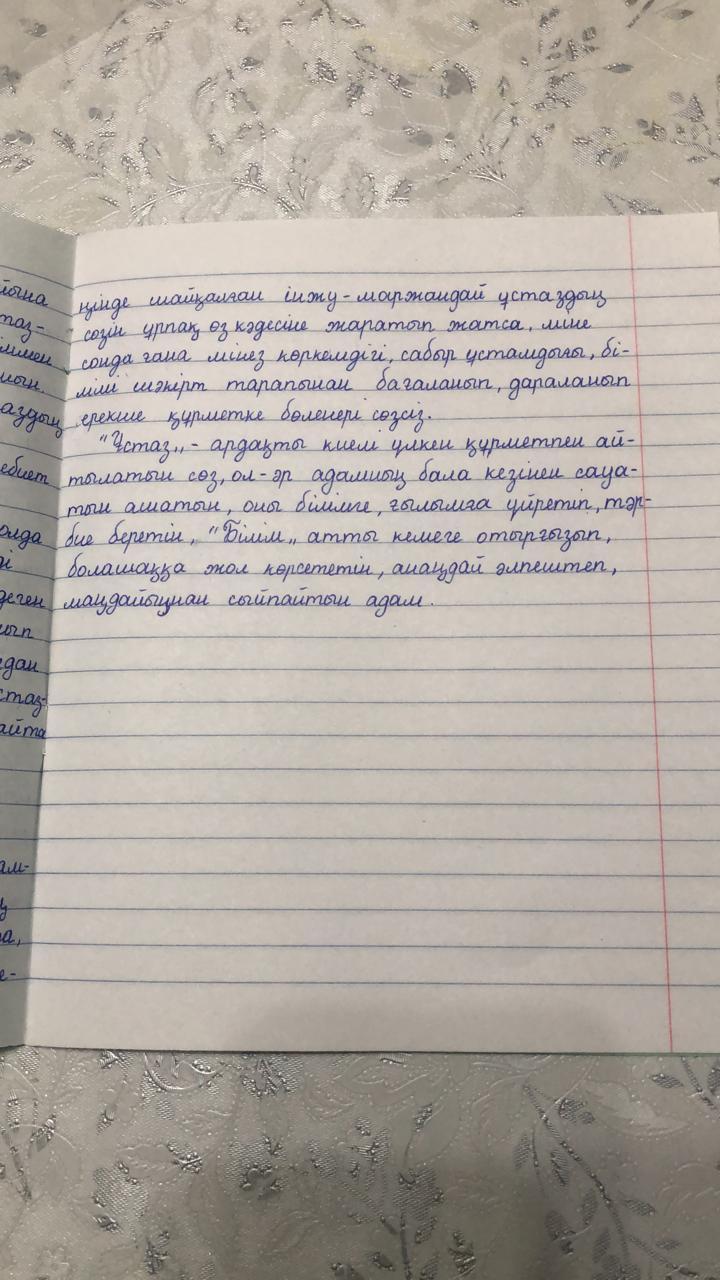 йына
таз-
іммен
ның.
аздың
ебиет
олда
і
деген
ып
дан
стаз-
айта
ам-
ң
а,
е-
ңінде шайқалған інжу-маржандай ұстаздың
сөзін ұрпақ өз кәдесіне жаратып жатса, міне
сонда ғана мінез көркемдігі, сабыр ұстамдығы, бі-
лім шәкірт тарапынан бағаланып, дараланып
ерекше құрметке бөленері сөзсіз.
"Ұстаз„ - ардақты киелі үлкен құрметпен ай-
тылатын сөз, ол-әр адамның бала кезінен сауа-
тын ашатын, оны білімге, ғылымға үйретіп, тәр-
бие беретін, "Білім„ атты кемеге отырғызып,
болашаққа жол көрсететін, анаңдай әлпештеп,
маңдайыңнан сыйпайтын адам.